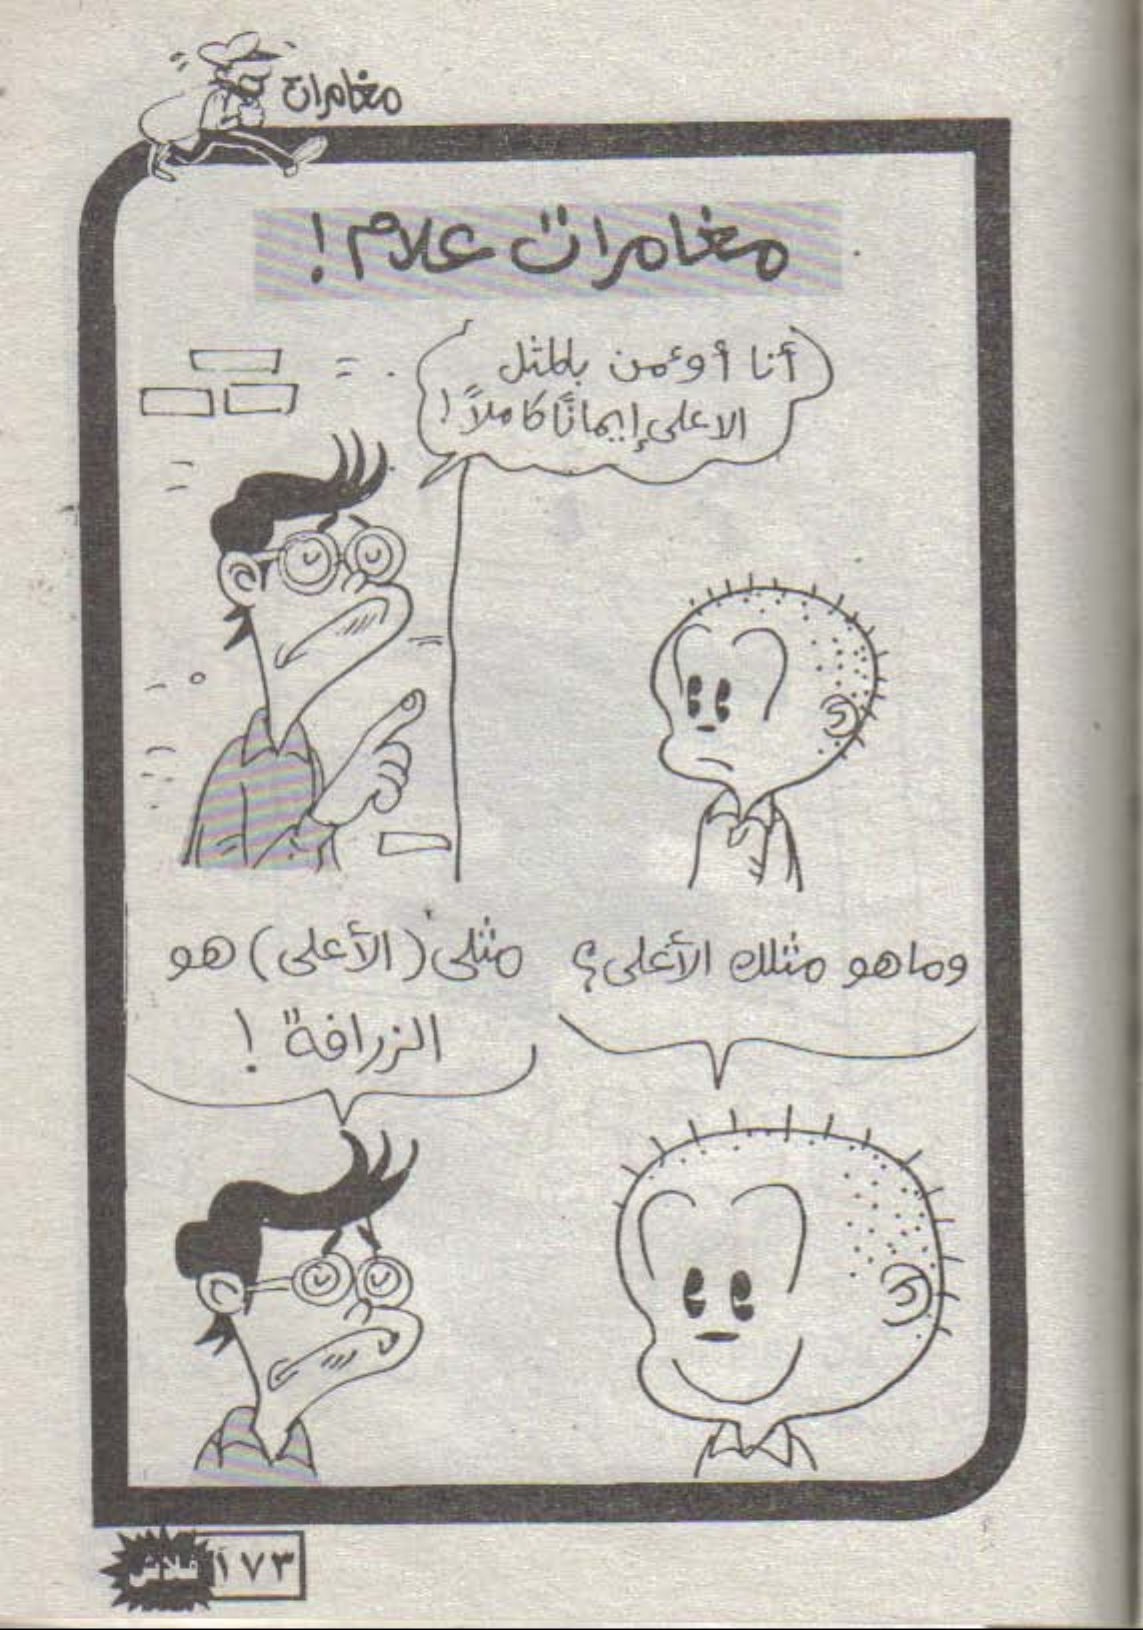 مغامرات
مغامرات علام !
أنا أوءمن بالمثل
الاعلى إيمانًا كاملاً !
وما هو مثلك الأعلى؟
مثلى (الأعلى) هو
الزرافة !
١٧٣
فلاش